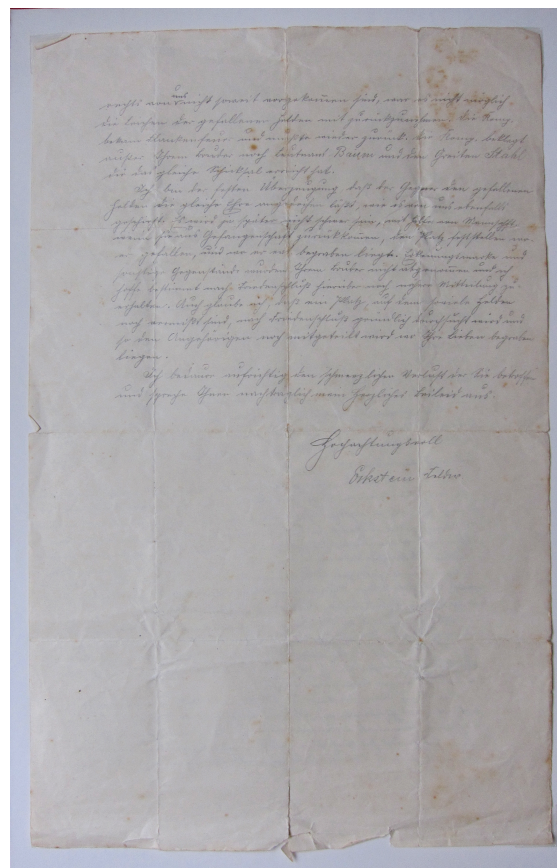 rechts von uns nicht soweit vorgekommen sind, war es nicht möglich
die Leichen der gefallenen Helden mit zurückzunehmen. Die Komp.
bekam Flankenfeuer und mußte wieder zurück. Die Komp. beklagt
außer Ihrem Bruder noch Leutnant Baum und den Gefreiten Stahl
die das gleiche Schicksal erreicht hat.
Ich bin der festen Überzeugung daß der Gegner den gefallenen
Helden die gleiche Ehre angedeihen läßt, wie es von uns ebenfalls
geschieht. sein, später nicht schwer sein,
wenn Gefangenschaft zurückkommen, den Platz feststellen wo
er gefallen, und wo er begraben liegt. Erkennungsmarke und
sonstige Gegenstände wurden Ihrem Bruder nicht abgenommen und ich
hoffe bestimmt nach Friedensschluß hierüber noch nähere Mitteilung zu
erhalten. Auch glaube ich, daß ein Platz, auf dem soviele Helden
noch vermißt sind, nach Friedensschluß gründlich durchsucht wird und
so den Angehörigen noch mitgeteilt wird wo Ihre Lieben begraben
liegen.
Ich bedaure aufrichtig den schmerzlichen Verlust der Sie betroffen
und spreche Ihnen nachträglich mein herzliches Beileid aus
Hochachtungsvoll
Eckstein